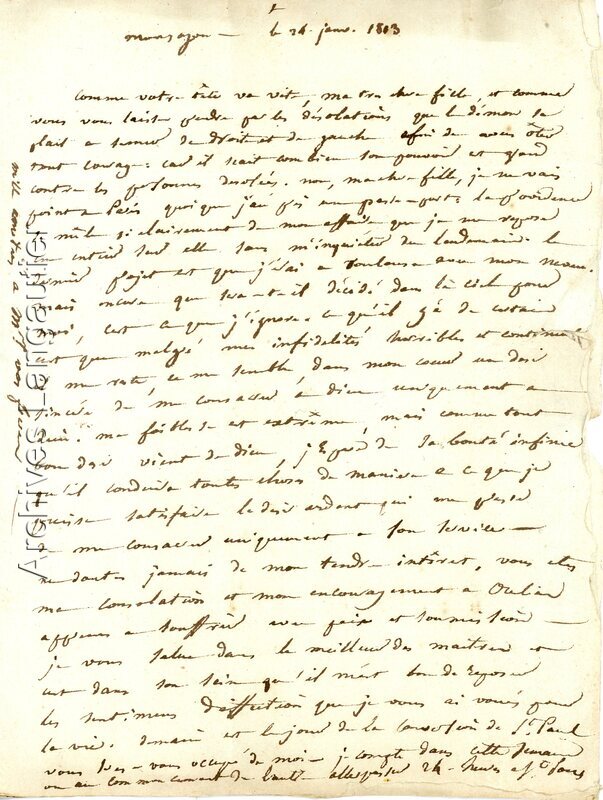 monsazon — le 24. janv. 1813
comme votre tête va vite, ma tres chere fille, et comme
vous vous laissez prendre par les désolations que le démon se
plait a semer de droite et de gauche afin de vous ôter
tout courage: car il scait combien son pouvoir est grand
contre les personnes desolées. non, ma chere fille, je ne vais
point a Paris quoique j'ai pris un passe-port; la providence
se mêle si clairement de mon affaire que je me repose
en entier sur elle sans m'inquiéter du lendemain. le
dernier projet est que j'irai a Toulouse avec mon neveu.
mais encore que sera-t-il décidé dans le ciel pour
moi, c'est ce que j'ignore. ce qu'il y a de certain
est que malgré mes infidelités horribles et continuelles
il me reste, ce me semble, dans mon coeur un desir
sincère de me consacrer a dieu uniquement a
lui. ma foiblesse est extrême, mais comme tout
bon desir vient de dieu, j'espère de sa bonté infinie
qu'il conduira toutes choses de maniere a ce que je
puisse satisfaire le desir ardent qui me presse
de me consacrer uniquement a son service —
ne doutez jamais de mon tendre intérêt, vous etes
ma consolation et mon encouragement a
apprenez a souffrir avec paix et soumission —
je vous salue dans le meilleur des maitres et
c'est dans son sein qu'il m'est bon de deposer
les sentimens d'affection que je vous ai voués pour
la vie. demain est le jour de la conversion de St. Paul
vous serez-vous occupé de moi — je compte dans cette semaine
ou au commencement de l'autre aller passer 24 heures a
Archives-a